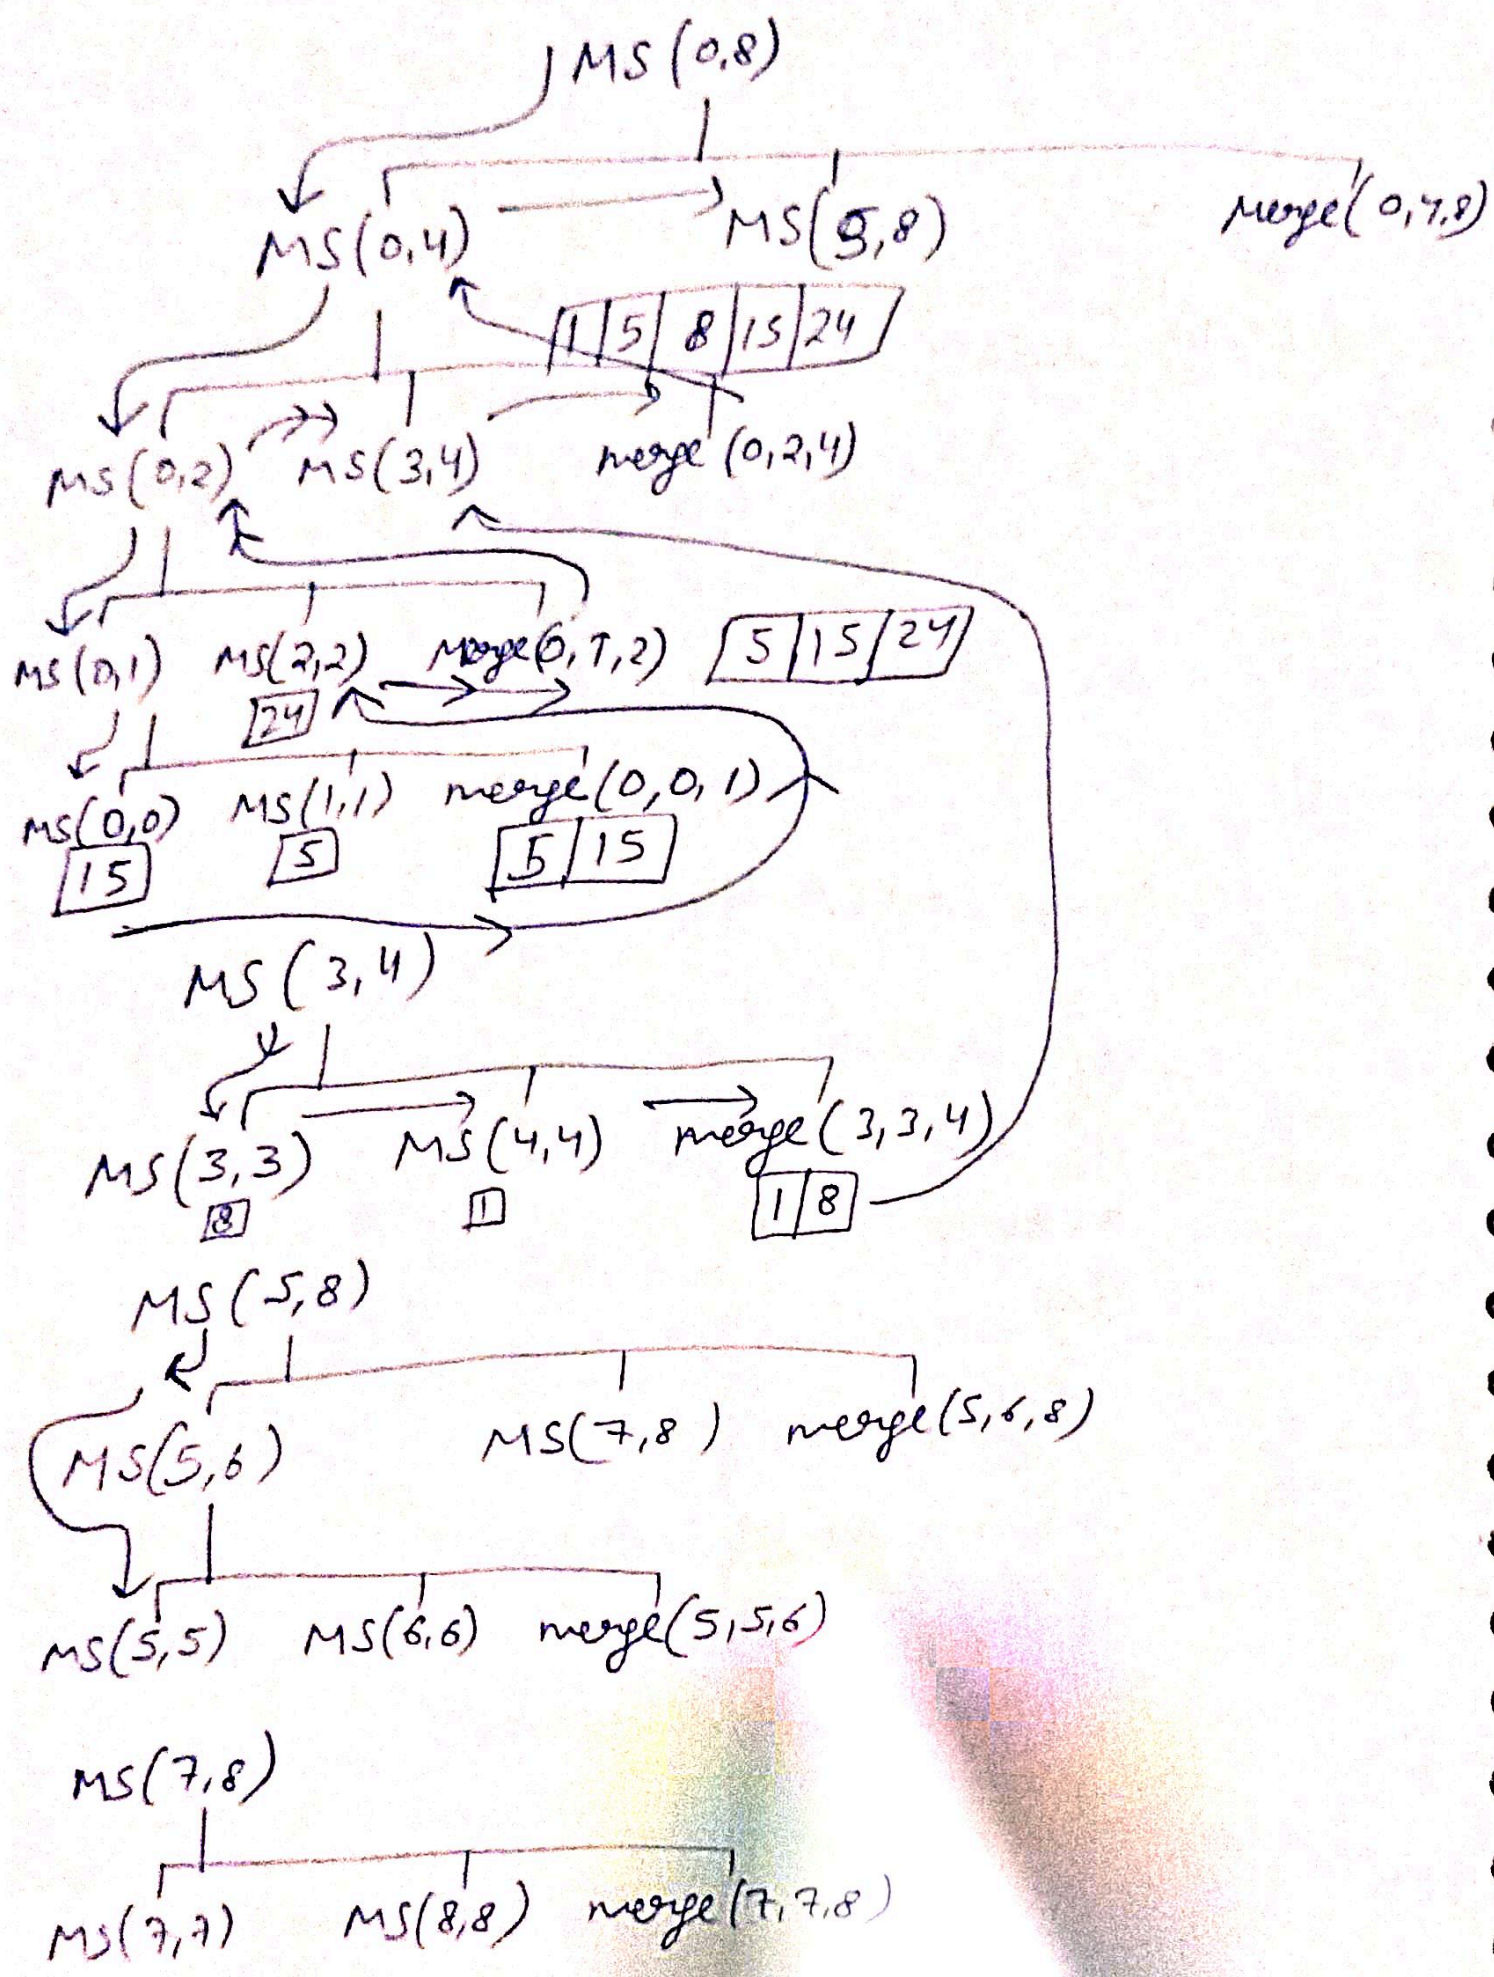 MS(0,8)
MS(0,4) MS(5,8) merge(0,4,8)
1 5 8 15 24
MS(0,2) MS(3,4) merge(0,2,4)
MS(0,1) MS(2,2) merge(0,1,2) 5 15 24
24
MS(0,0) MS(1,1) merge(0,0,1)
15 5 5 15
MS(3,4)
MS(3,3) MS(4,4) merge(3,3,4)
8 1 1 8
MS(5,8)
MS(5,6) MS(7,8) merge(5,6,8)
MS(5,5) MS(6,6) merge(5,5,6)
MS(7,8)
MS(7,7) MS(8,8) merge(7,7,8)